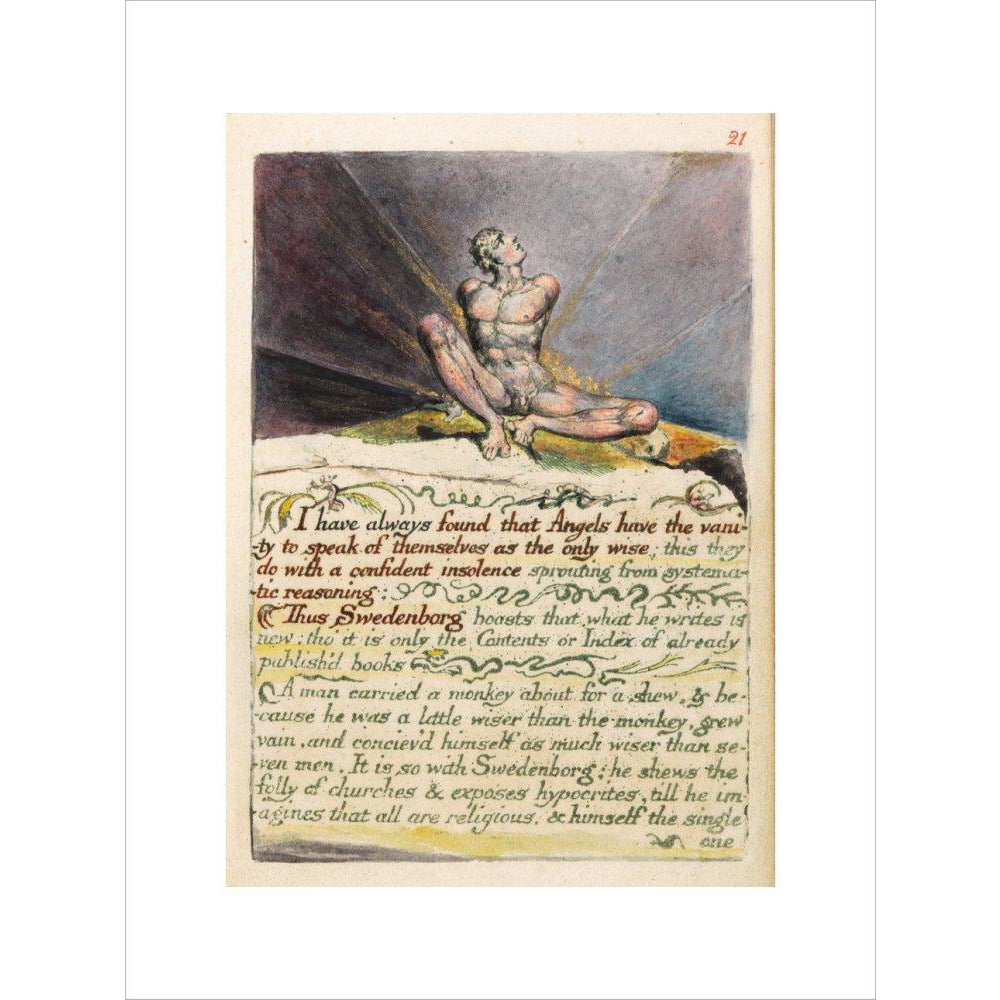 21
I have always found that Angels have the vani-
-ty to speak of themselves as the only wise; this they
do with a confident insolence sprouting from systema-
-tic reasoning:
Thus Swedenborg boasts that what he writes is
new: tho' it is only the Contents or Index of already
publish'd books
A man carried a monkey about for a shew, & be-
-cause he was a little wiser than the monkey, grew
vain, and conciev'd himself as much wiser than se-
-ven men. It is so with Swedenborg; he shews the
folly of churches & exposes hypocrites, till he im-
-agines that all are religious, & himself the single
one